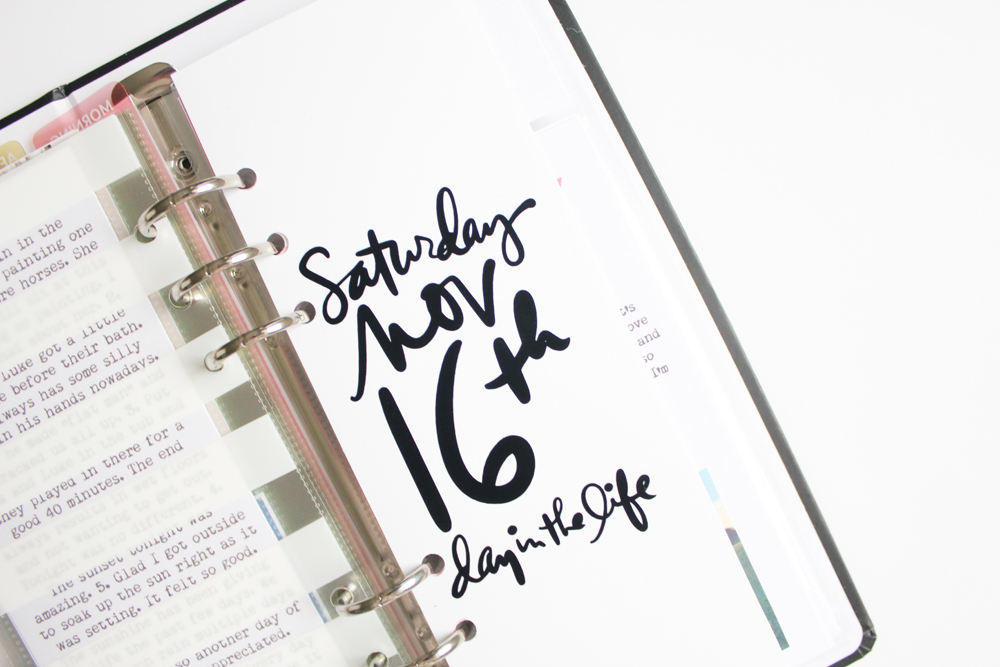 MORNING
in the
painting one
re horses. She
Luke got a little
e before their bath.
lways has some silly
in his hands nowadays.
they played in there for a
good 40 minutes. The end
The sunset tonight was
amazing. 5. Glad I got outside
to soak up the sun right as it
was setting. It felt so good.
so another day of
ppreciated.
Saturday
Nov
16th
day in the life
ove
and
so
I'm